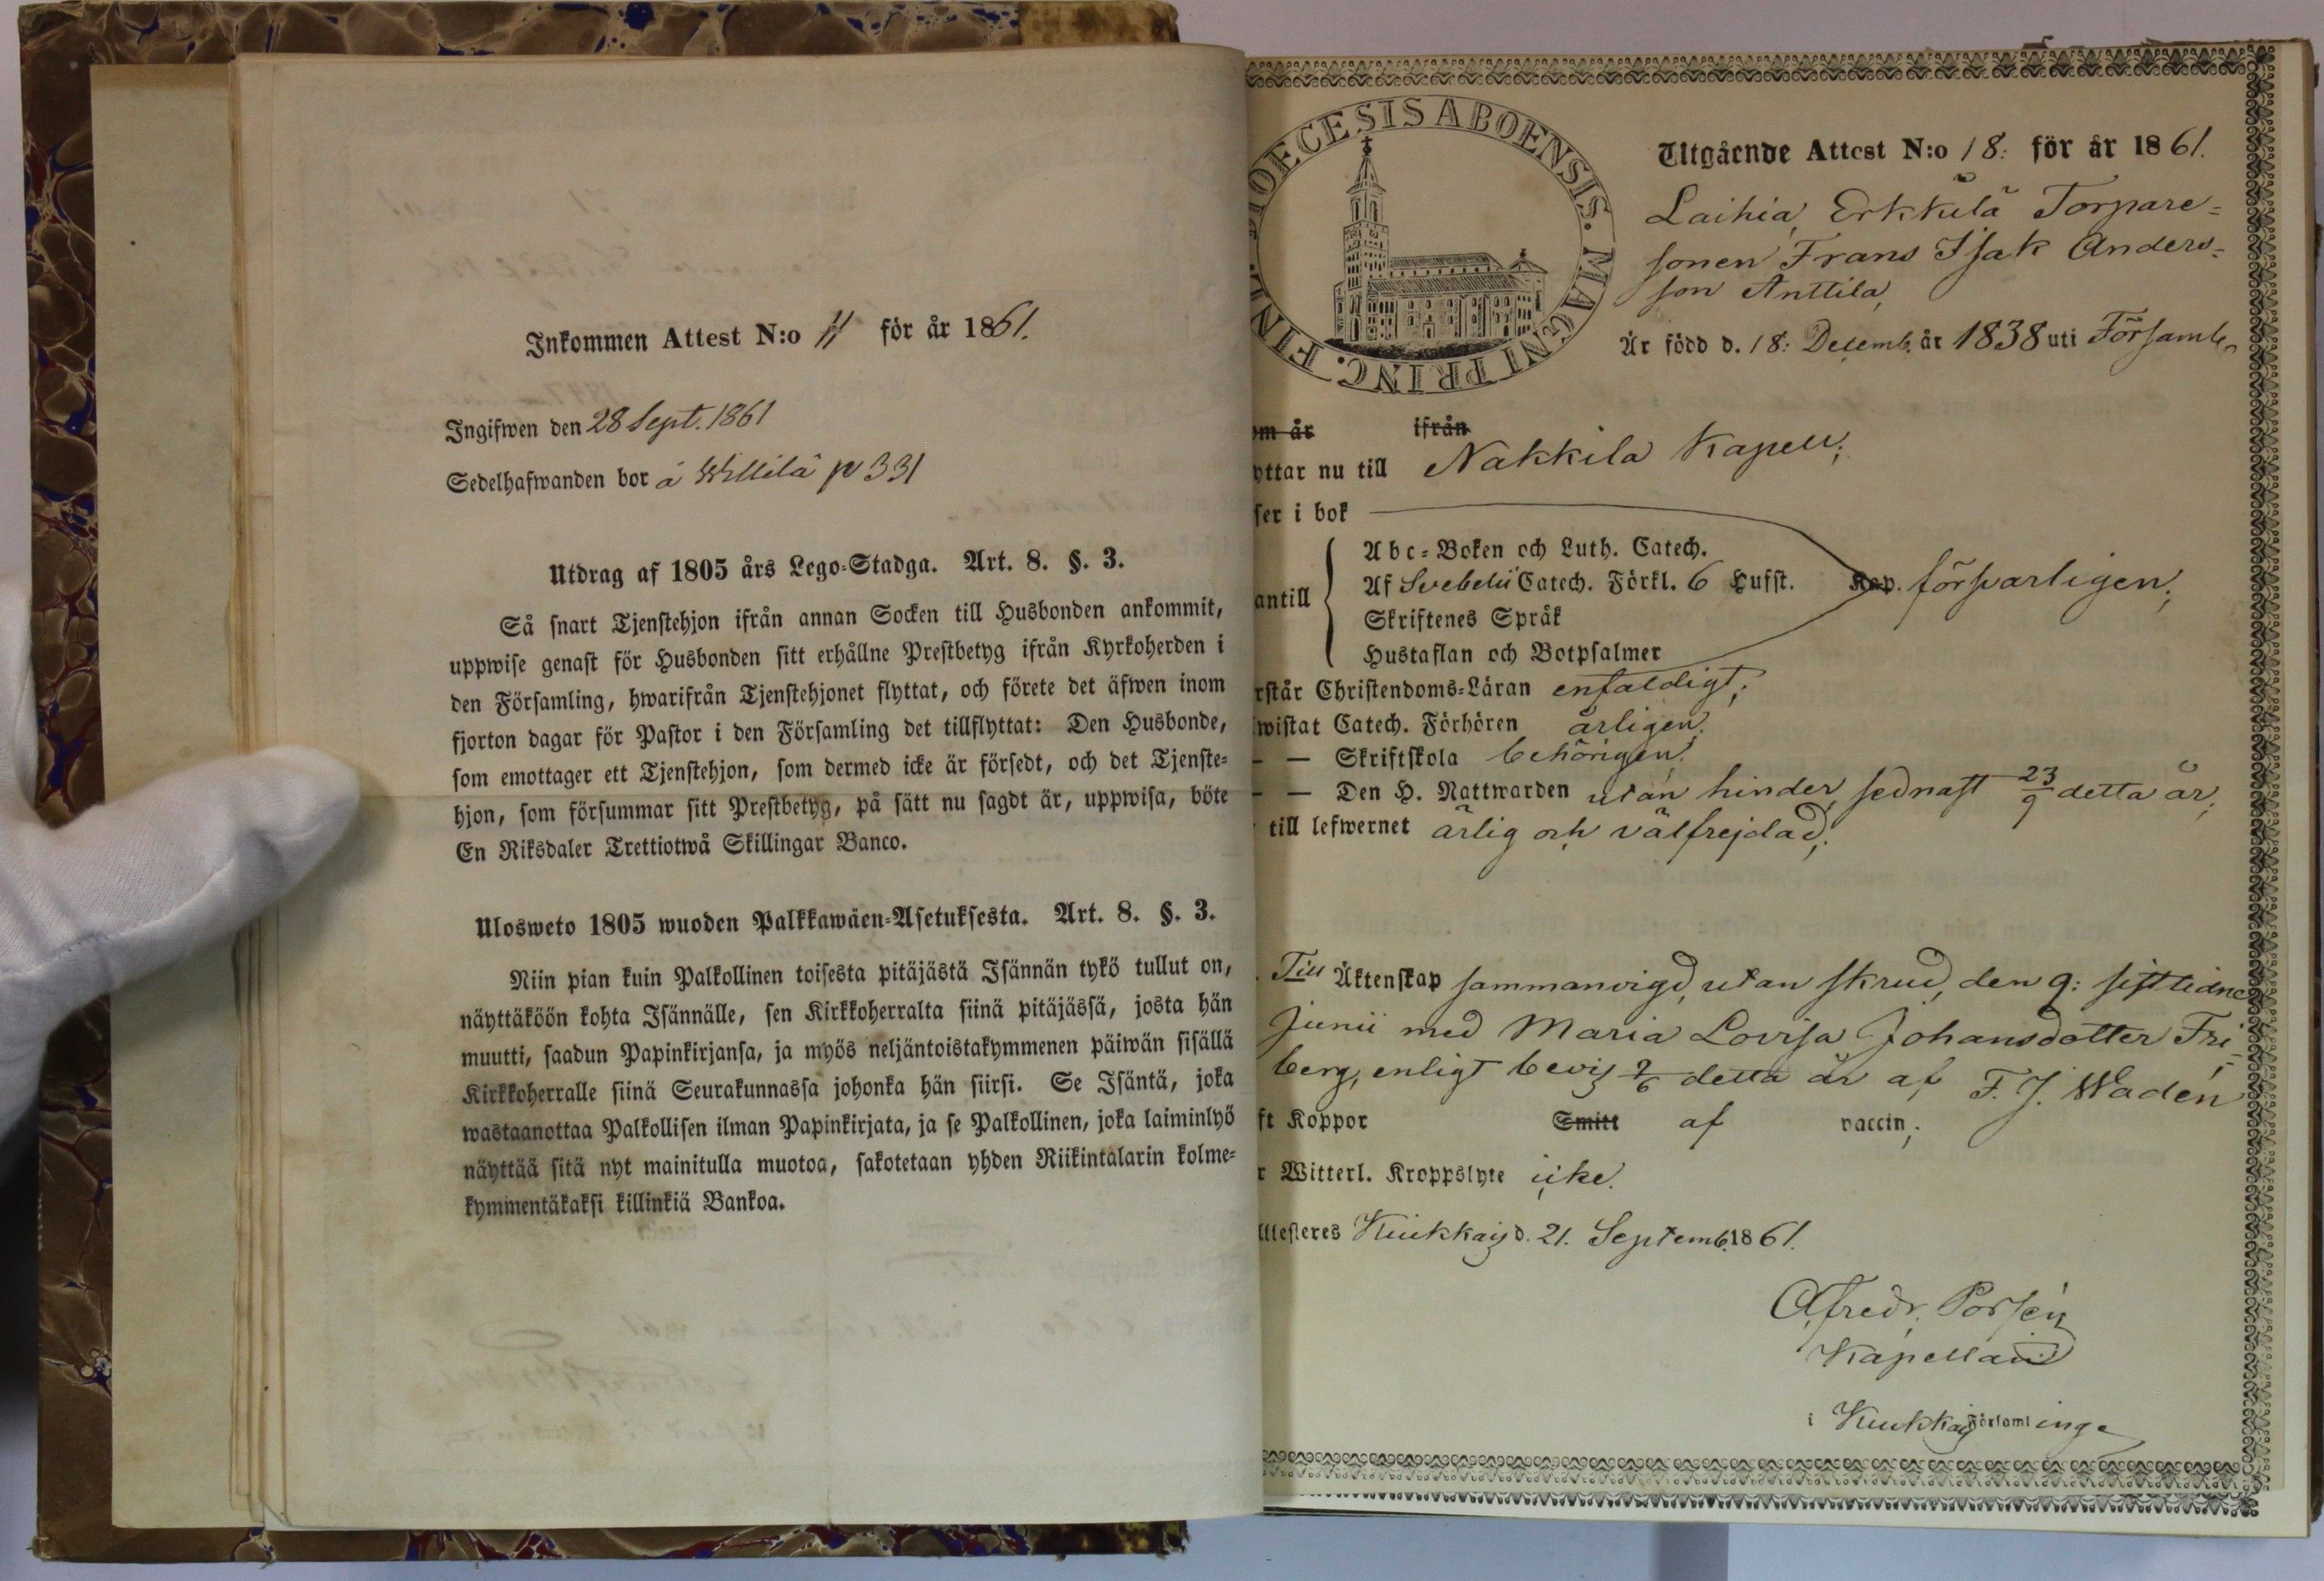 Inkommen Attest N:o 11 för år 1861.
Ingifwen den 28 Sept. 1861
Sedelhafwanden bor å Willilä p 331
Utdrag af 1805 års Lego-Stadga. Art. 8. §. 3.
Så snart Tjenstehjon ifrån annan Socken till Husbonden ankommit,
uppwise genast för Husbonden sitt erhållne Prestbetyg ifrån Kyrkoherden i
den Församling, hwarifrån Tjenstehjonet flyttat, och förete det äfwen inom
fjorton dagar för Pastor i den Församling det tillflyttat: Den Husbonde,
som emottager ett Tjenstehjon, som dermed icke är försedt, och det Tjenste-
hjon, som försummar sitt Prestbetyg, på sätt nu sagdt är, uppwisa, böte
En Riksdaler Trettiotwå Skillingar Banco.
Ulosweto 1805 wuoden Palkkawäen-Asetuksesta. Art. 8. §. 3.
Niin pian kuin Palkollinen toisesta pitäjästä Isännän tykö tullut on,
näyttäköön kohta Isännälle, sen Kirkkoherralta siinä pitäjässä, josta hän
muutti, saadun Papinkirjansa, ja myös neljäntoistakymmenen päiwän sisällä
Kirkkoherralle siinä Seurakunnassa johonka hän siirsi. Se Isäntä, joka
wastaanottaa Palkollisen ilman Papinkirjata, ja se Palkollinen, joka laiminlyö
näyttää sitä nyt mainitulla muotoa, sakotetaan yhden Riikintalarin kolme-
kymmentäkaksi killinkiä Bankoa.
DIOECESIS ABOENSIS. MAGNI PRINC. FINL.
Utgående Attest N:o 18: för år 1861.
Laihia, Erkkilä Torpare=
sonen Frans Isak Anders=
son Anttila,
Är född d. 18: Decemb. år 1838 uti Församl.
om år ifrån
yttar nu till Nakkila Kapell;
ser i bok
antill
Abc-Boken och Luth. Catech.
Af Svebelii Catech. Förkl. 6 Hufst. Kap. försvarligen;
Skriftenes Språk
Hustaflan och Botpsalmer
rstår Christendoms-Läran enfaldigt;
wistat Catech. Förhören årligen;
– — Skriftskola behörigen;
– — Den H. Nattwarden utan hinder, sednast 23/9 detta år;
till lefwernet ärlig och välfrejdad;
Till Äktenskap sammanvigd, utan skrud, den 9: sisttidne
Junii med Maria Lovisa Johansdotter Fri=
berg, enligt bevis 9/6 detta år af F. J. Wadén
ft Koppor Smitt af vaccin;
r Witterl. Kroppslyte icke.
ttesteres Kiukkais d. 21. Septemb. 1861.
Alfredr. Porsén
Kapellan
i Kiukkais Församlinge